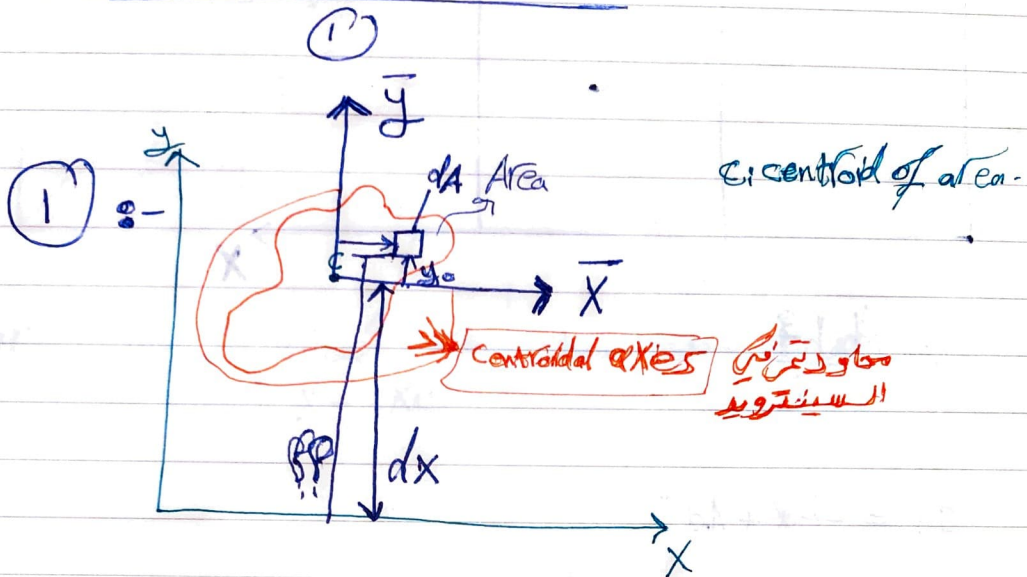 1
ȳ
y
dA Area
C: centroid of area.
1 :-
C
y₀
X̄
centroidal axes محاور تمر في
السينترويد
?? dx
X